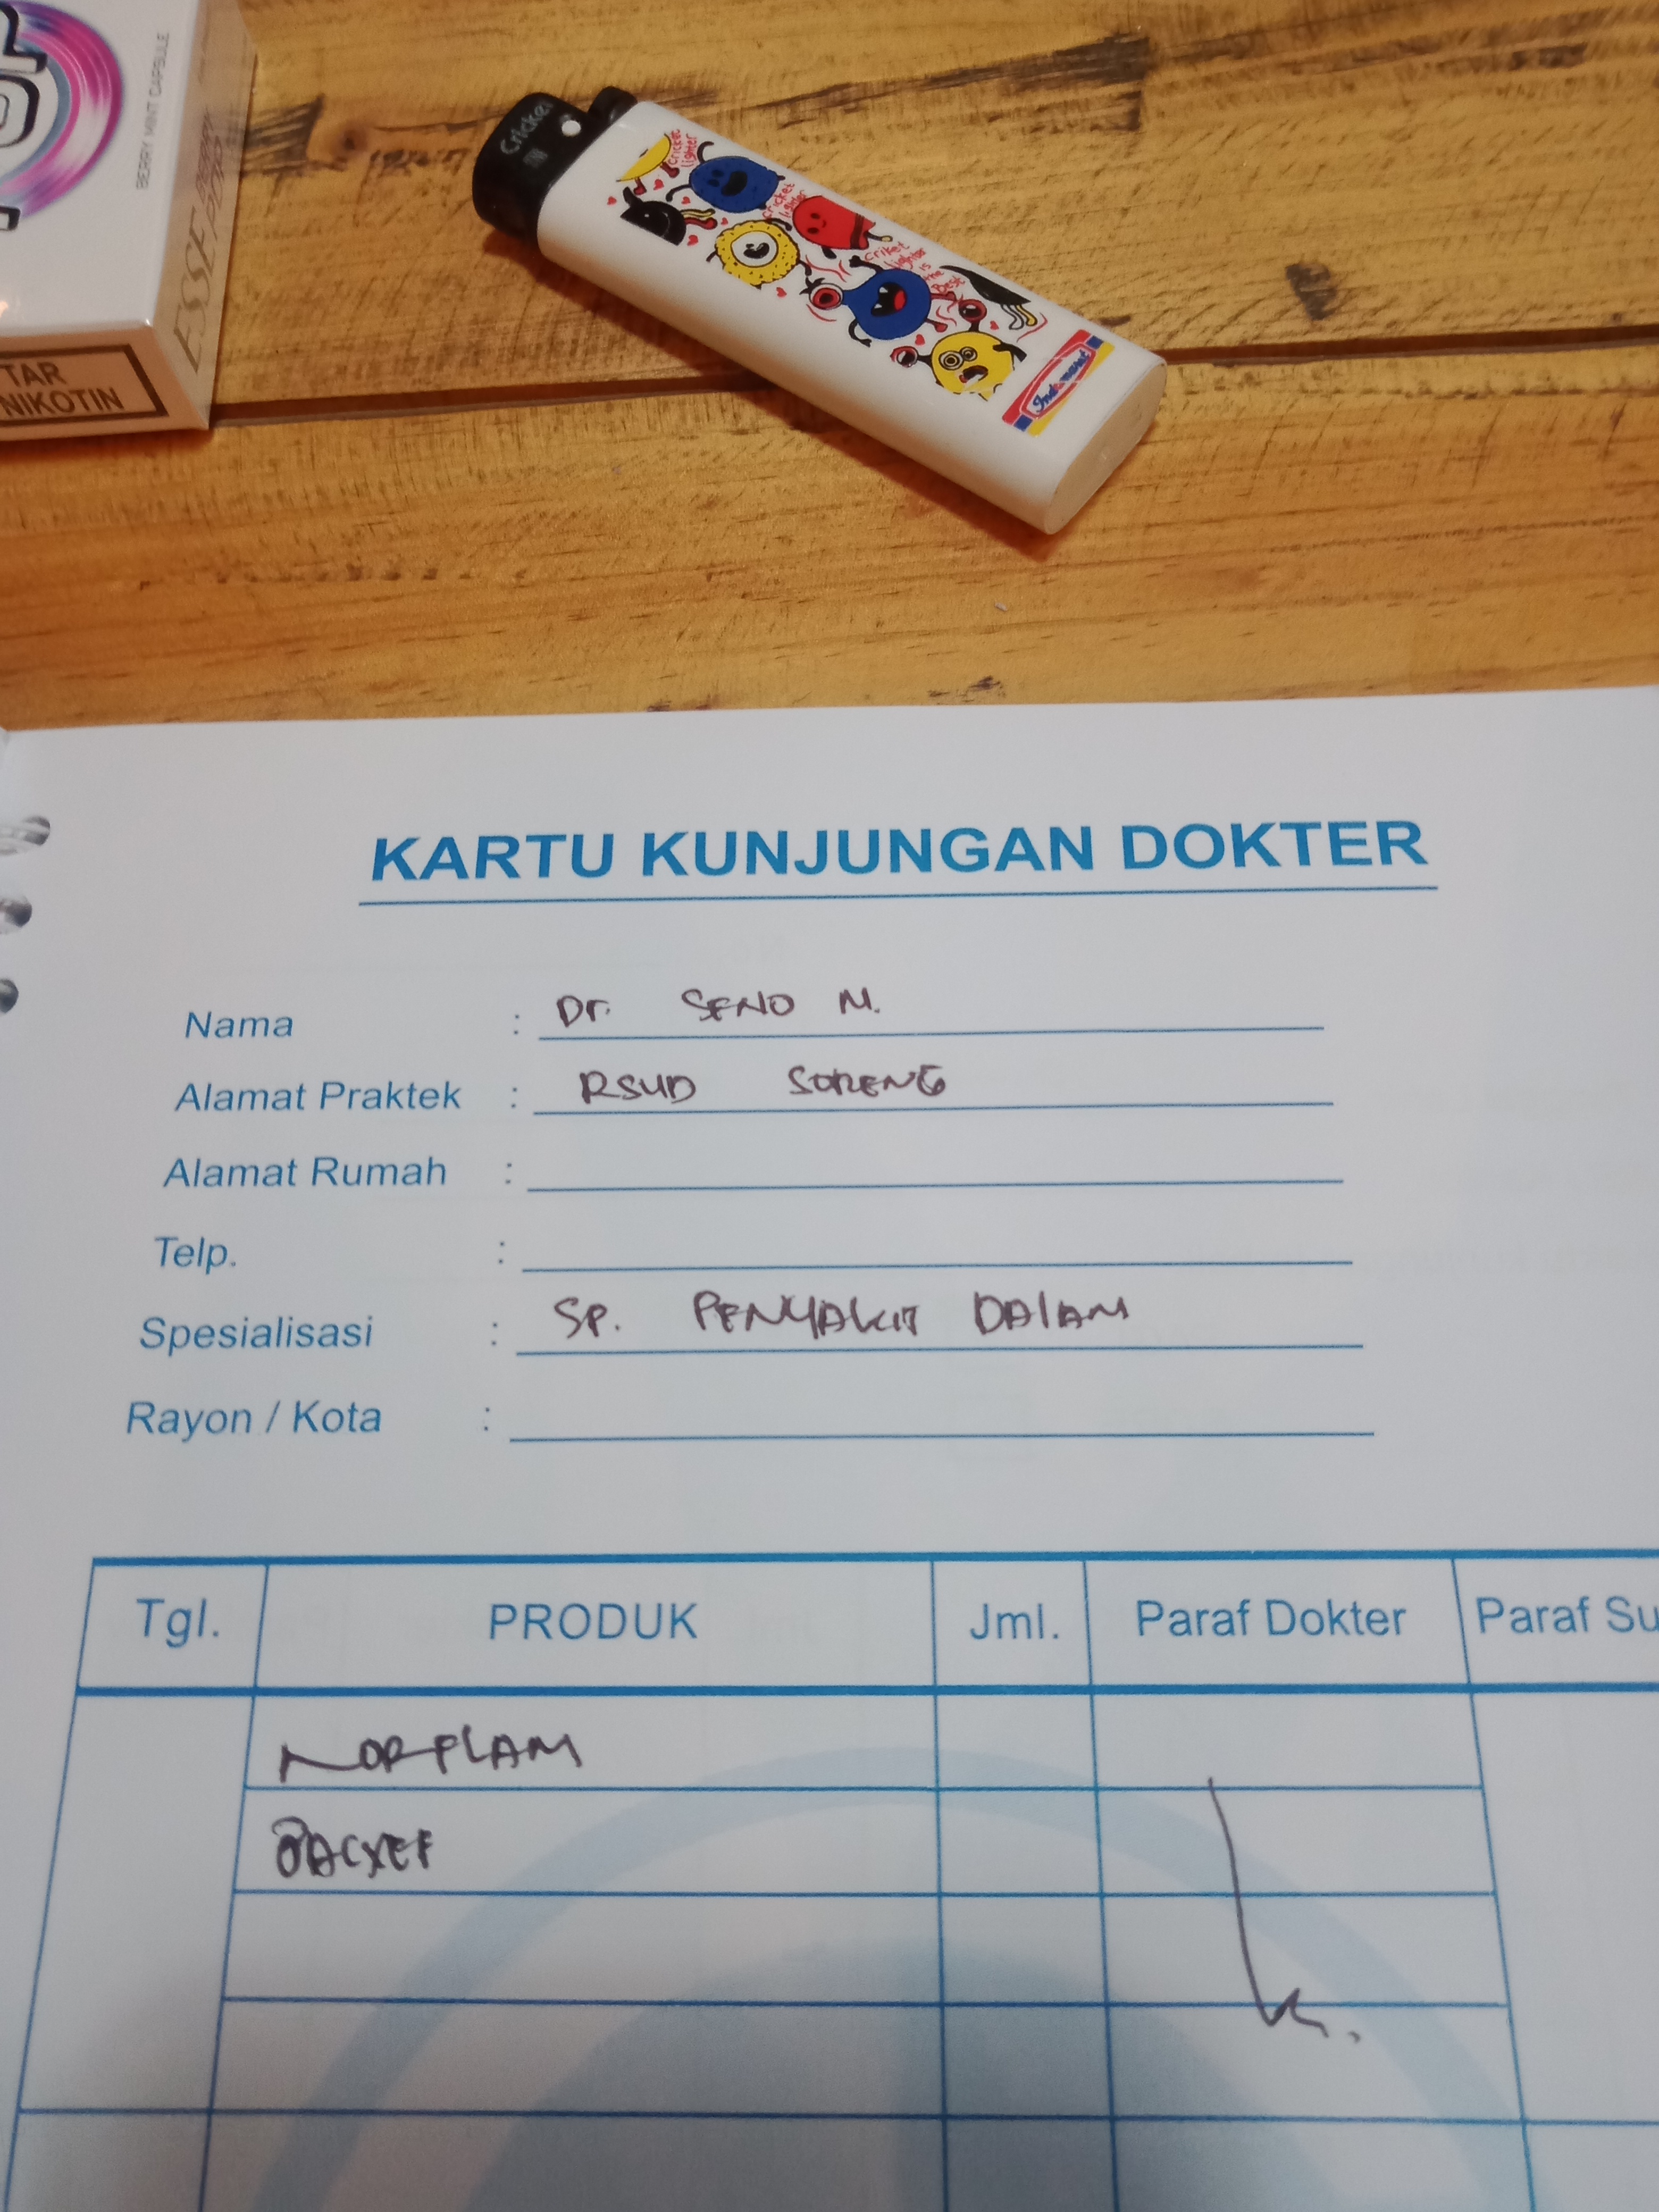 BERRY MINT CAPSULE
ESSE
TAR
NIKOTIN
Cricket
cricket lighter
cricket lighter
Criket lighter is the Best
Indomaret
KARTU KUNJUNGAN DOKTER
Nama : Dr. SENO M.
Alamat Praktek : RSUD SORENG
Alamat Rumah :
Telp. :
Spesialisasi : SP. PENYAKIT DALAM
Rayon / Kota :
Tgl. PRODUK Jml. Paraf Dokter Paraf Su
NORFLAM